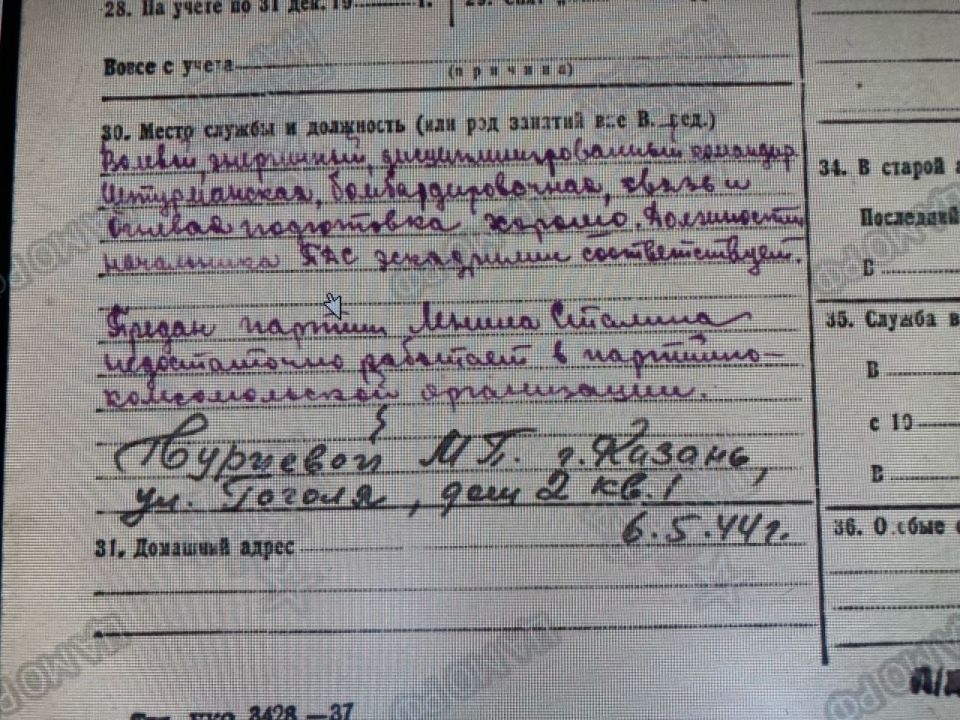 28. На учете по 31 дек. 19 г.
Вовсе с учета
(причина)
30. Место службы и должность (или род занятий вне В. вед.)
Волевой, энергичный, дисциплинированный командир.
Штурманская, бомбардировочная, связь и
огневая подготовка хорошо. Должности
начальника ПДС эскадрилии соответствует.
Предан партии Ленина Сталина
недостаточно работает в партийно-
комсомольской организации.
М П. г. Казань,
ул. Гоголя, дом 2 кв. 1
6.5.44 г.
31. Домашний адрес
34. В старой
Последний
В
35. Служба в
В
с 19
В
36. Особые
3428—37
ЦАМО РФ